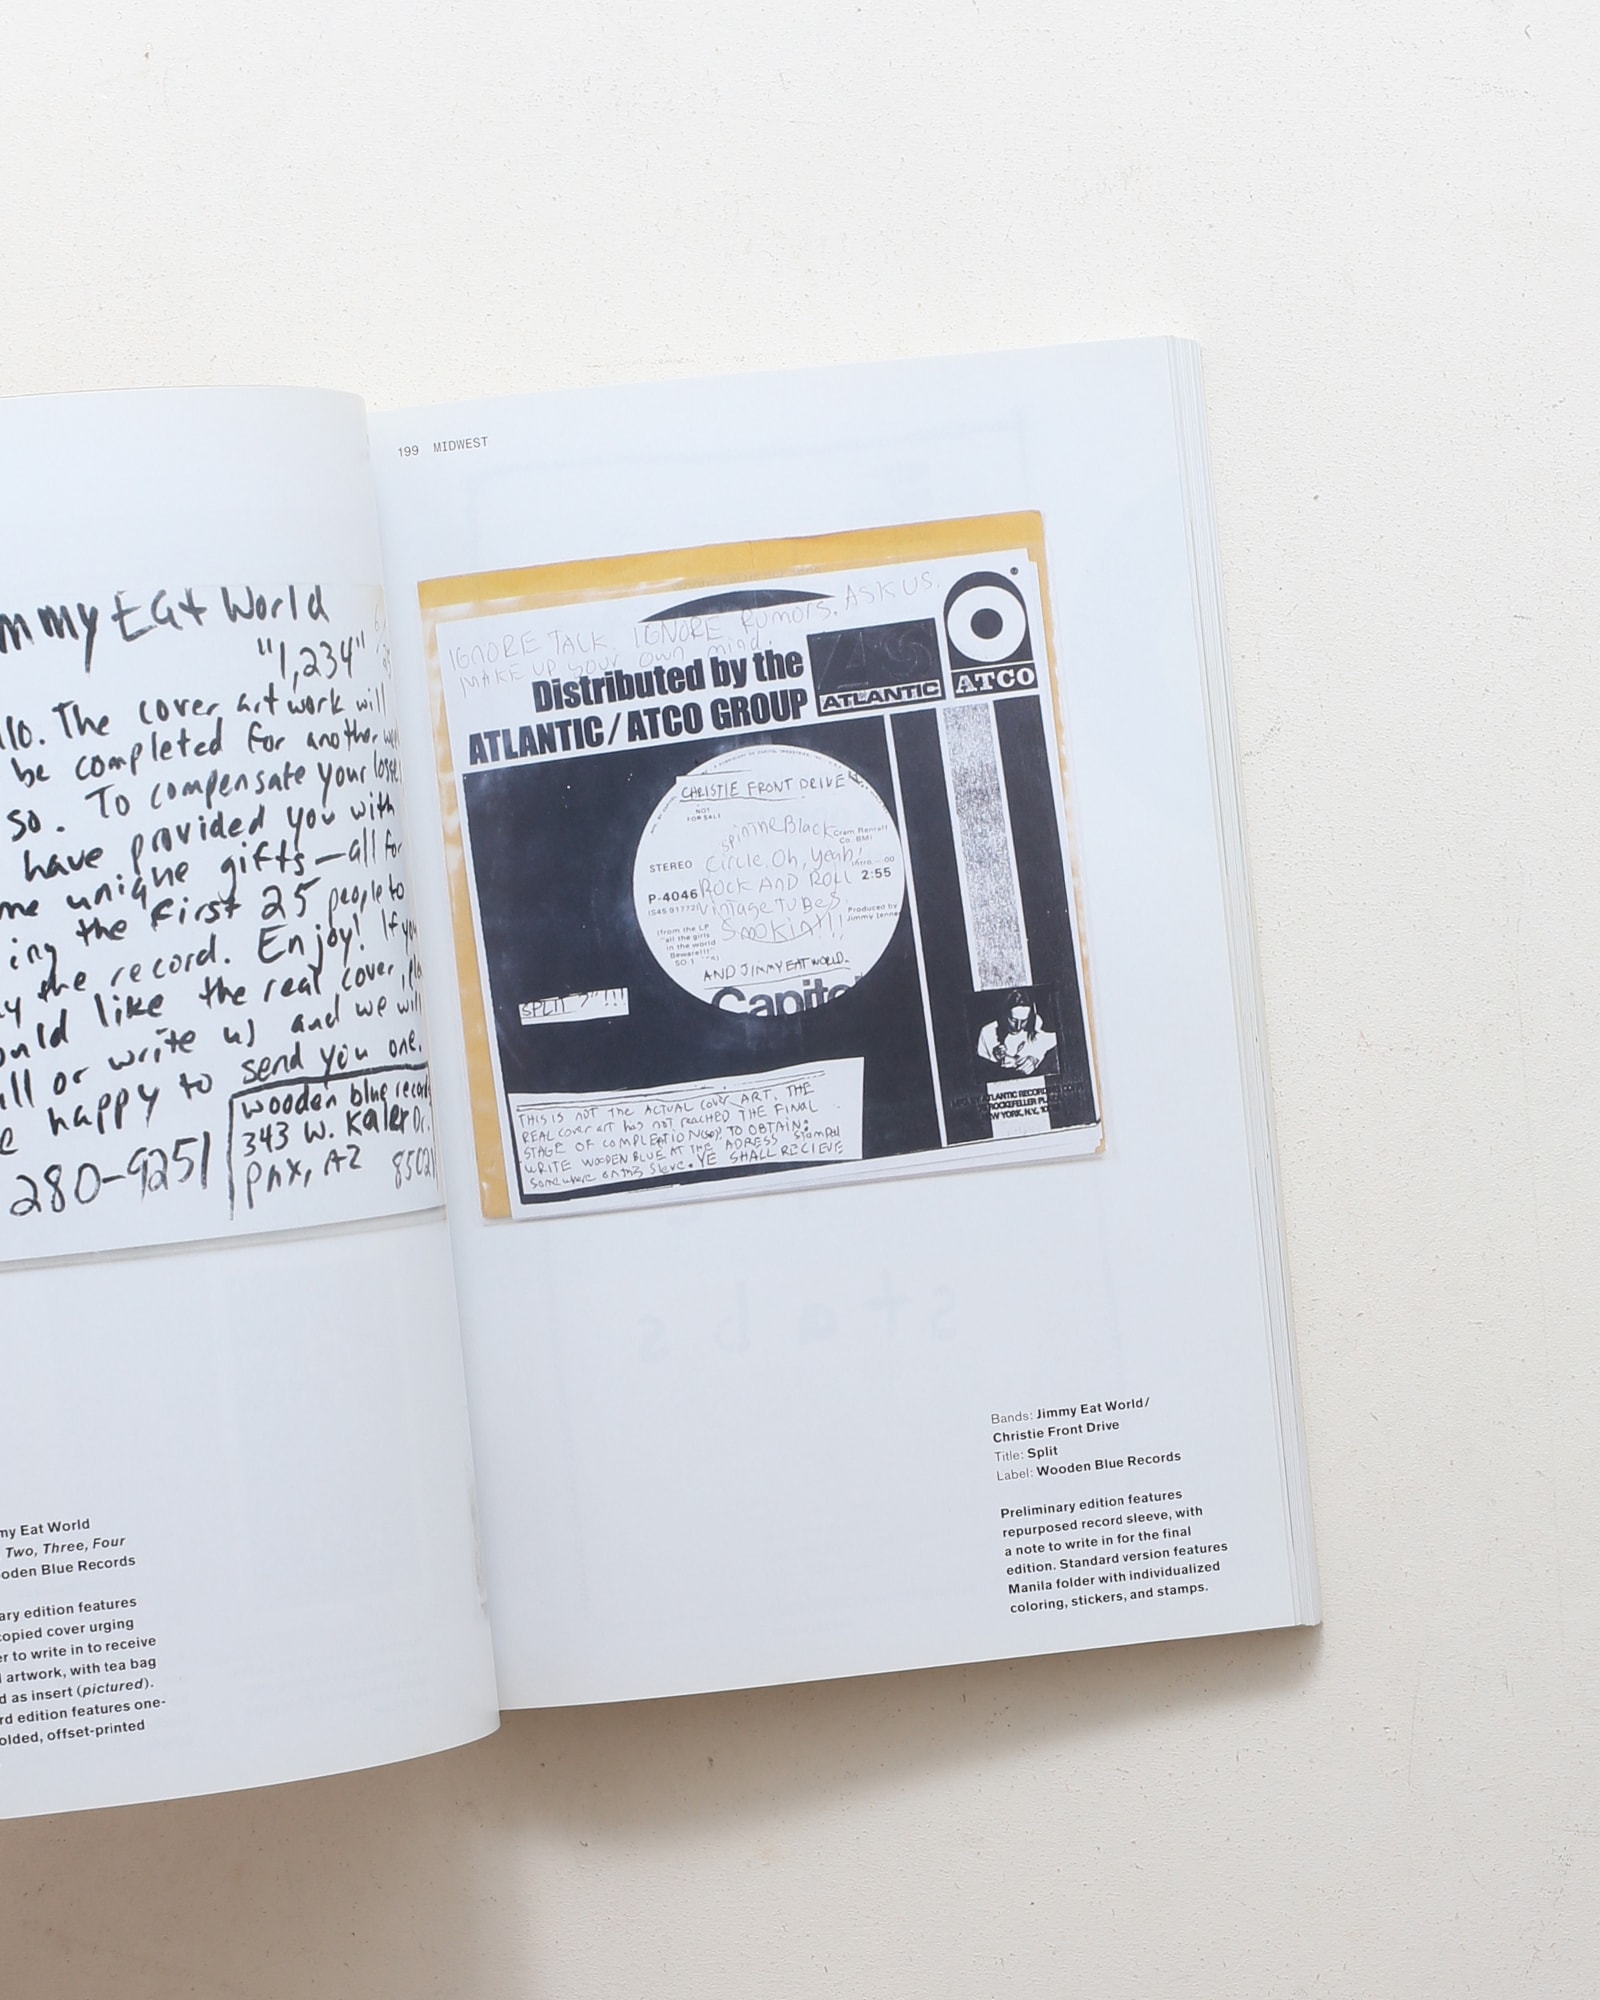 mmy Eat World
"1,234"
llo. The cover artwork will
be completed for another
so. To compensate your losses
have provided you with
me unique gifts—all for
ing the first 25 people to
y the record. Enjoy! If you
ould like the real cover,
all or write us and we will
e happy to send you one.
280-9251
wooden blue records
343 W. Kaler Dr.
PHX, AZ
85021
my Eat World
Two, Three, Four
oden Blue Records
ary edition features
copied cover urging
er to write in to receive
artwork, with tea bag
d as insert (pictured).
rd edition features one-
olded, offset-printed
199 MIDWEST
IGNORE TALK. IGNORE Rumors. ASK US.
MAKE UP your own mind.
Distributed by the
ATLANTIC/ATCO GROUP
ATLANTIC
ATCO
CHRISTIE FRONT DRIVE
NOT
FOR SALE
spin The Black
Circle. Oh, Yeah!
ROCK AND ROLL
Vintage TUBES.
Smokin!!!
AND JIMMY EAT WORLD.
STEREO
P-4046
2:55
Produced by
(from the LP
"all the girls
in the world
Beware!!!"
Capito
SPLIT 7"!!!
THIS IS NOT THE ACTUAL COVER ART. THE
REAL cover art has not reached THE FINAL
STAGE OF COMPLEATION TO OBTAIN:
WRITE WOODEN BLUE AT THE ADRESS STAMPED
somewhere on this sleve. YE SHALL RECIEVE
ATLANTIC RECORDING
ROCKEFELLER
NEW YORK, N.Y.
Bands: Jimmy Eat World/
Christie Front Drive
Title: Split
Label: Wooden Blue Records
Preliminary edition features
repurposed record sleeve, with
a note to write in for the final
edition. Standard version features
Manila folder with individualized
coloring, stickers, and stamps.